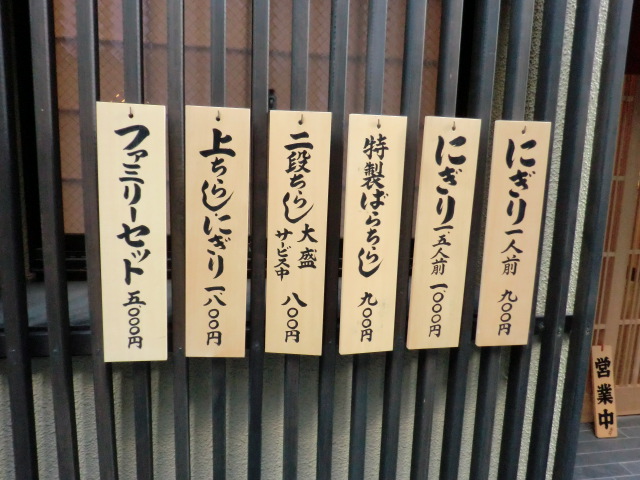 にぎり一人前 九〇〇円
にぎり一.五人前 一、〇〇〇円
特製ばらちらし 九〇〇円
二段ちらし 大盛サービス中 八〇〇円
上ちらし、にぎり 一、八〇〇円
ファミリーセット 五、〇〇〇円
営業中